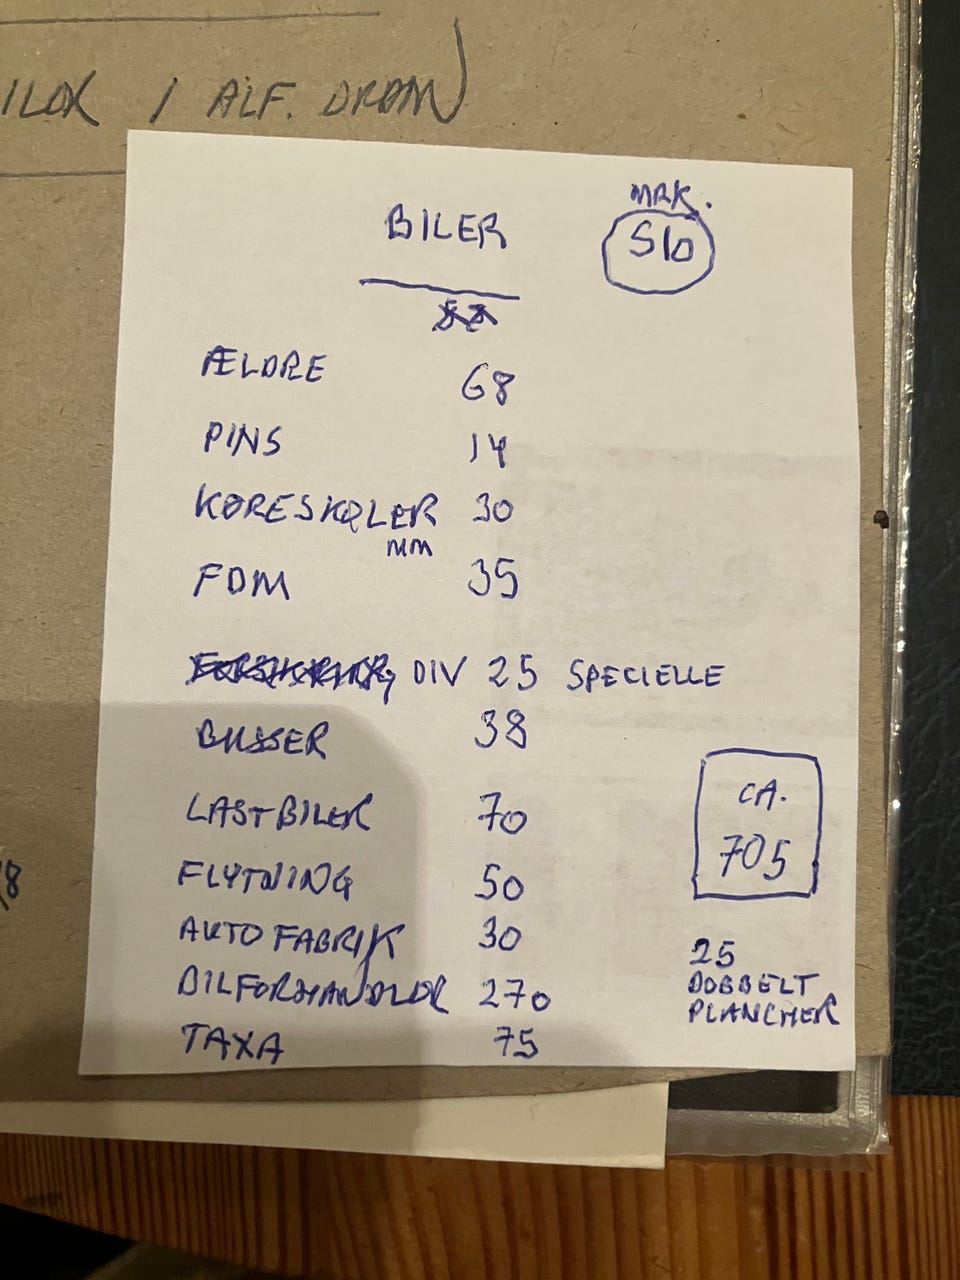 / ALF. DRAM
MRK.
BILER
S10
ÆLDRE 68
PINS 14
KØRESKOLER 30
MM
FDM 35
DIV 25 SPECIELLE
BUSSER 38
LASTBILER 70
CA.
705
FLYTNING 50
AUTO FABRIK 30
BILFORHANDLER 270
TAXA 75
25
DOBBELT
PLANCHER